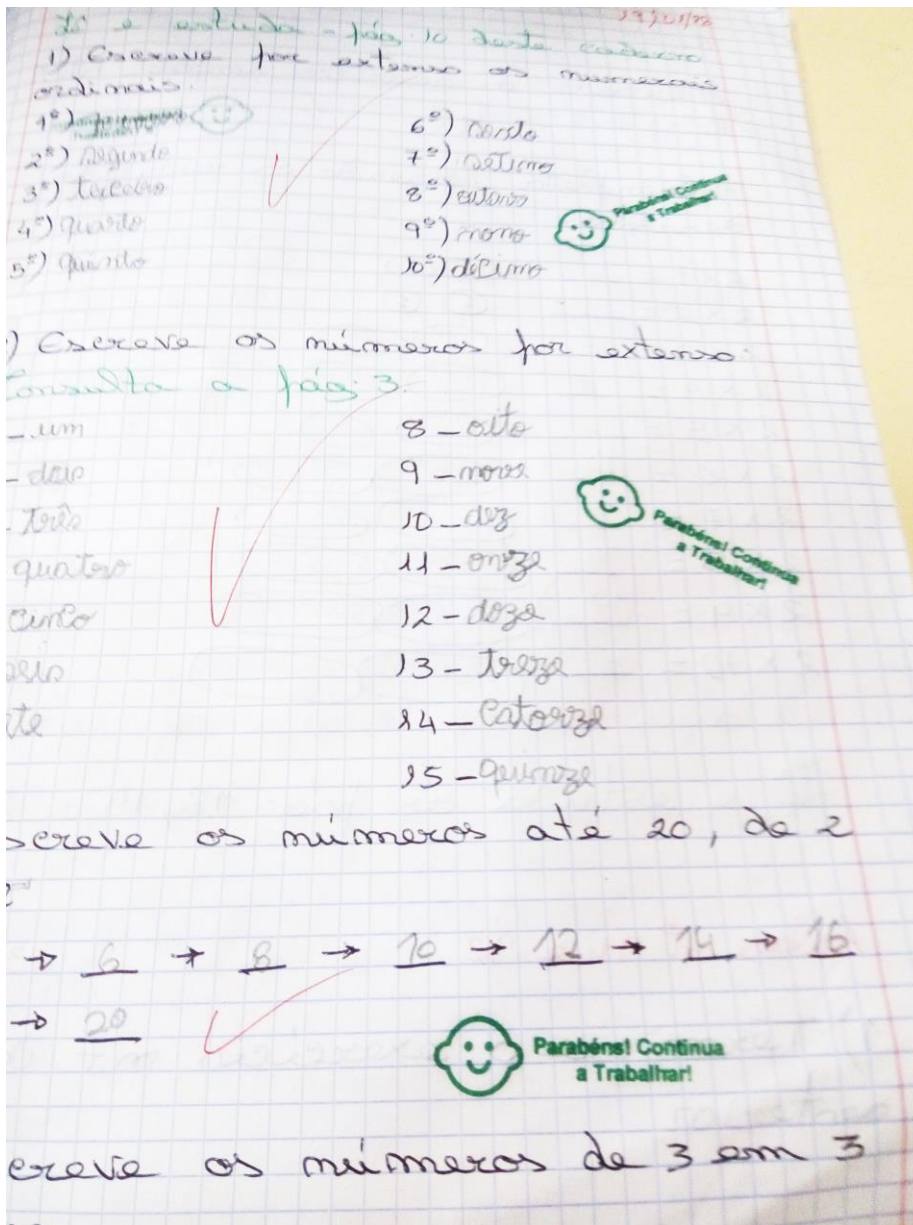 Lê e estuda - pág. 10 deste caderno
1) Escreve por extenso os numerais
ordinais.
1º)
2º) segundo
3º) terceiro
4º) quarto
5º) quinto
6º) sexto
7º) sétimo
8º) oitavo
9º) nono
10º) décimo
Parabéns! Continua
a Trabalhar!
) Escreve os números por extenso:
Consulta a pág. 3.
- um
- dois
- três
quatro
cinco
seis
ete
8 - oito
9 - nove
10 - dez
11 - onze
12 - doze
13 - treze
14 - catorze
15 - quinze
Parabéns! Continua
a Trabalhar!
screve os números até 20, de 2
2
→ 6 → 8 → 10 → 12 → 14 → 16
→ 20
Parabéns! Continua
a Trabalhar!
creve os números de 3 em 3